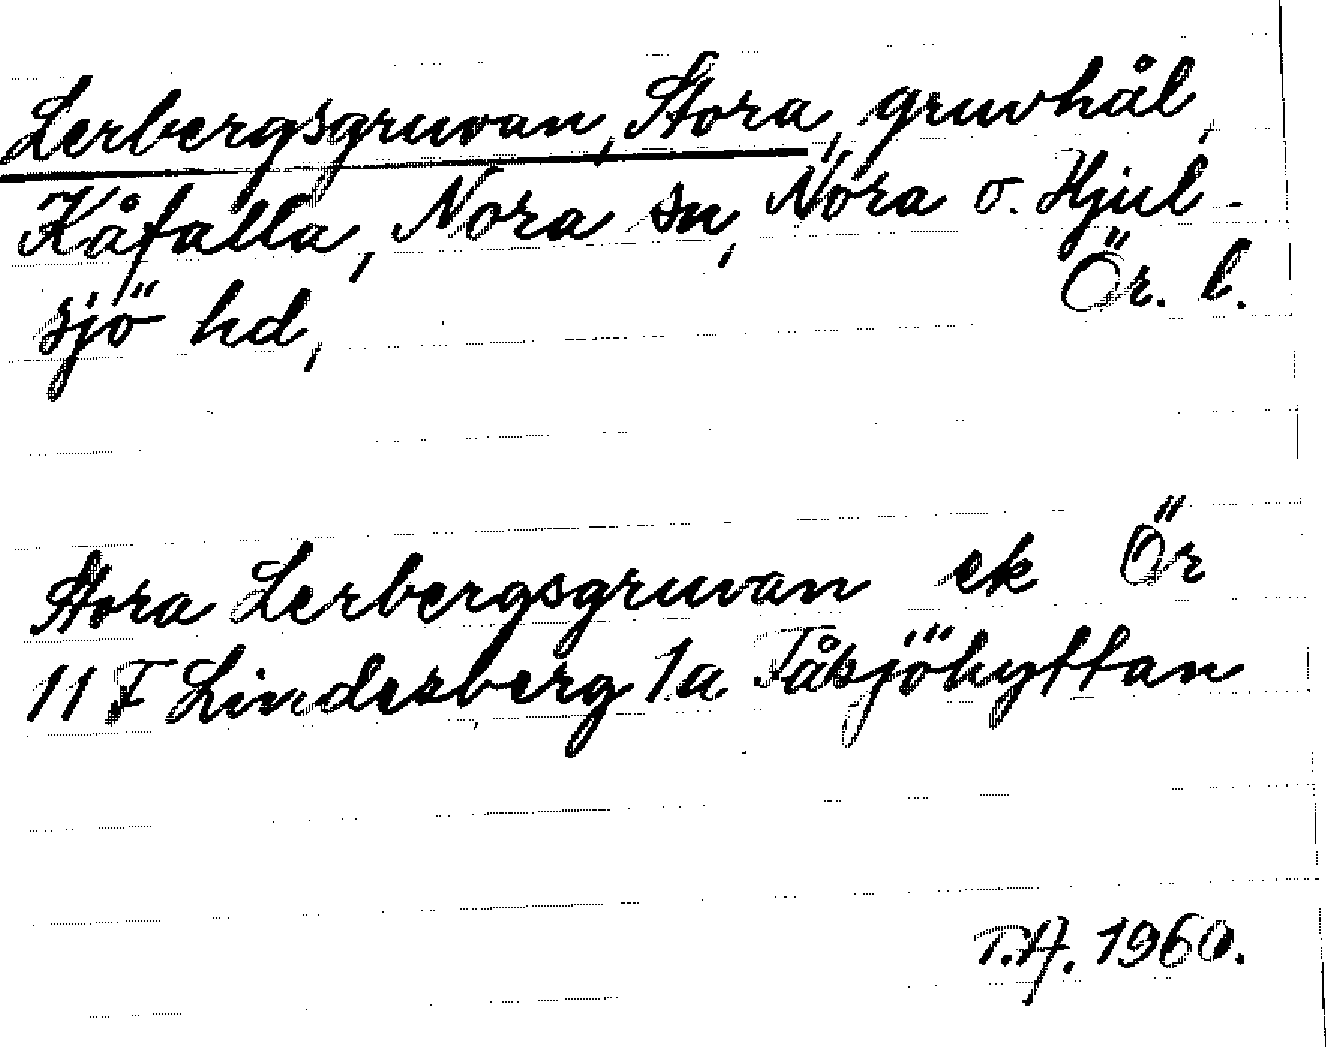 Lerbergsgruvan, Stora, gruvhål,
Kåfalla, Nora sn, Nora o. Hjul-
sjö hd, Ör. l.
Stora Lerbergsgruvan ek Ör
11 F Lindesberg 1a Tåsjöhyttan
T.A. 1960.